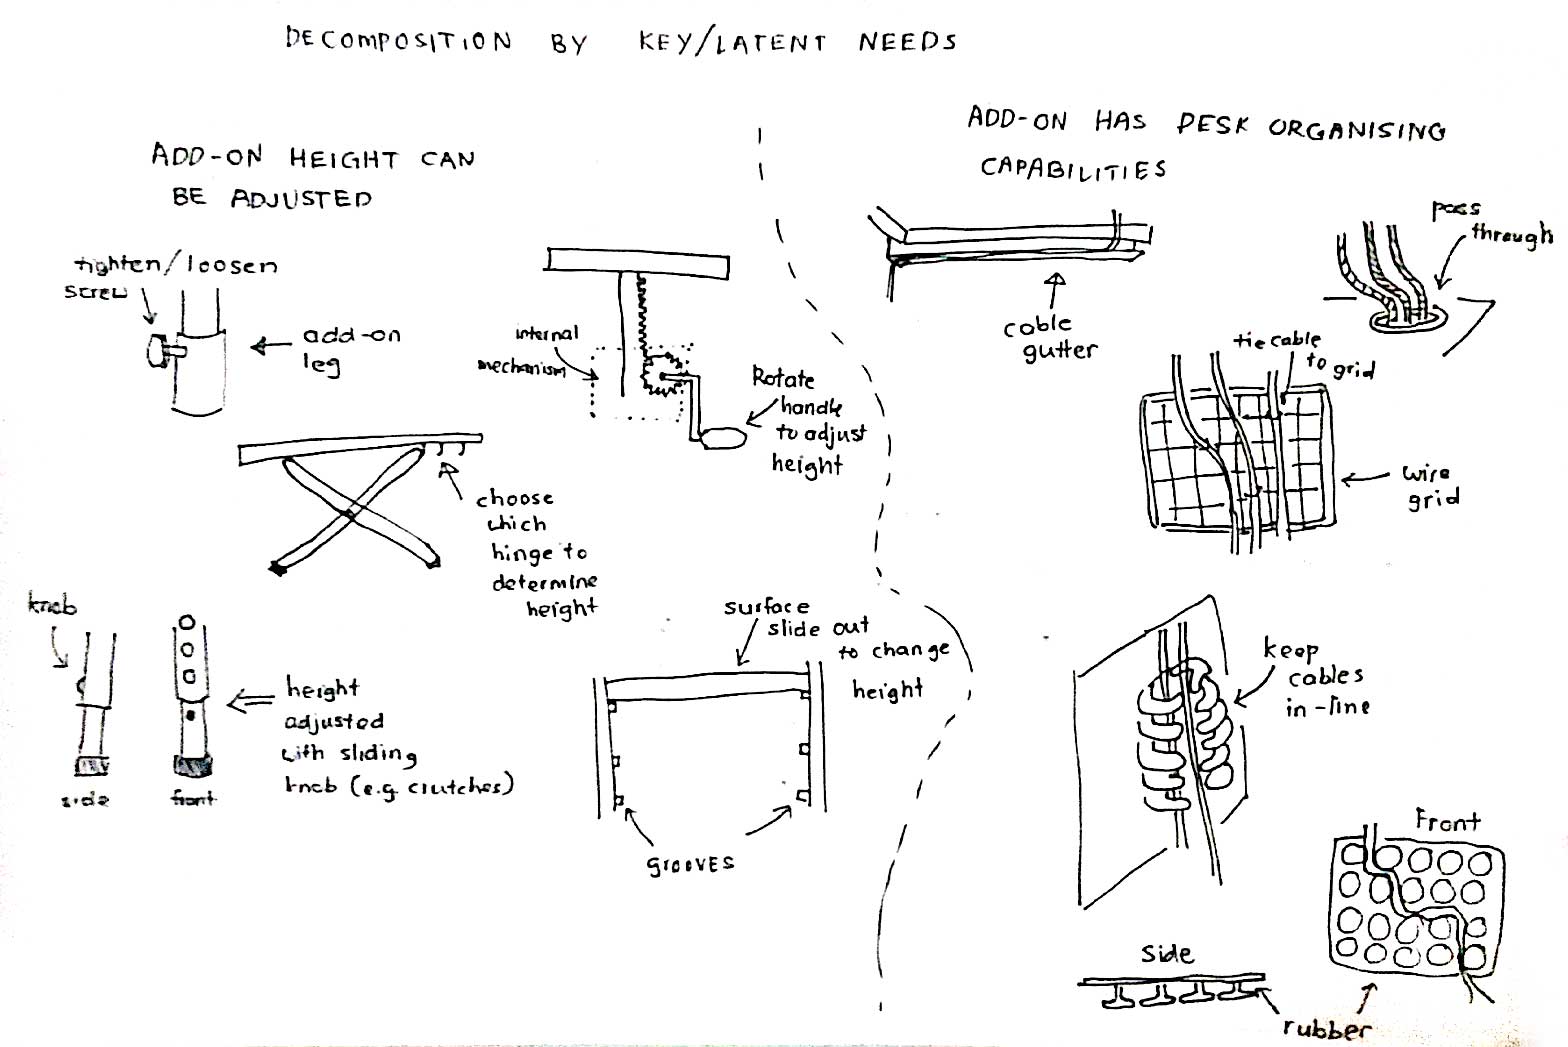 DECOMPOSITION BY KEY/LATENT NEEDS
ADD-ON HEIGHT CAN
BE ADJUSTED
tighten/loosen
screw
add-on
leg
internal
mechanism
Rotate
handle
to adjust
height
choose
which
hinge to
determine
height
knob
side
front
height
adjusted
with sliding
knob (e.g. crutches)
surface
slide out
to change
height
grooves
ADD-ON HAS DESK ORGANISING
CAPABILITIES
cable
gutter
pass
through
tie cable
to
grid
wire
grid
keep
cables
in-line
Front
Side
rubber